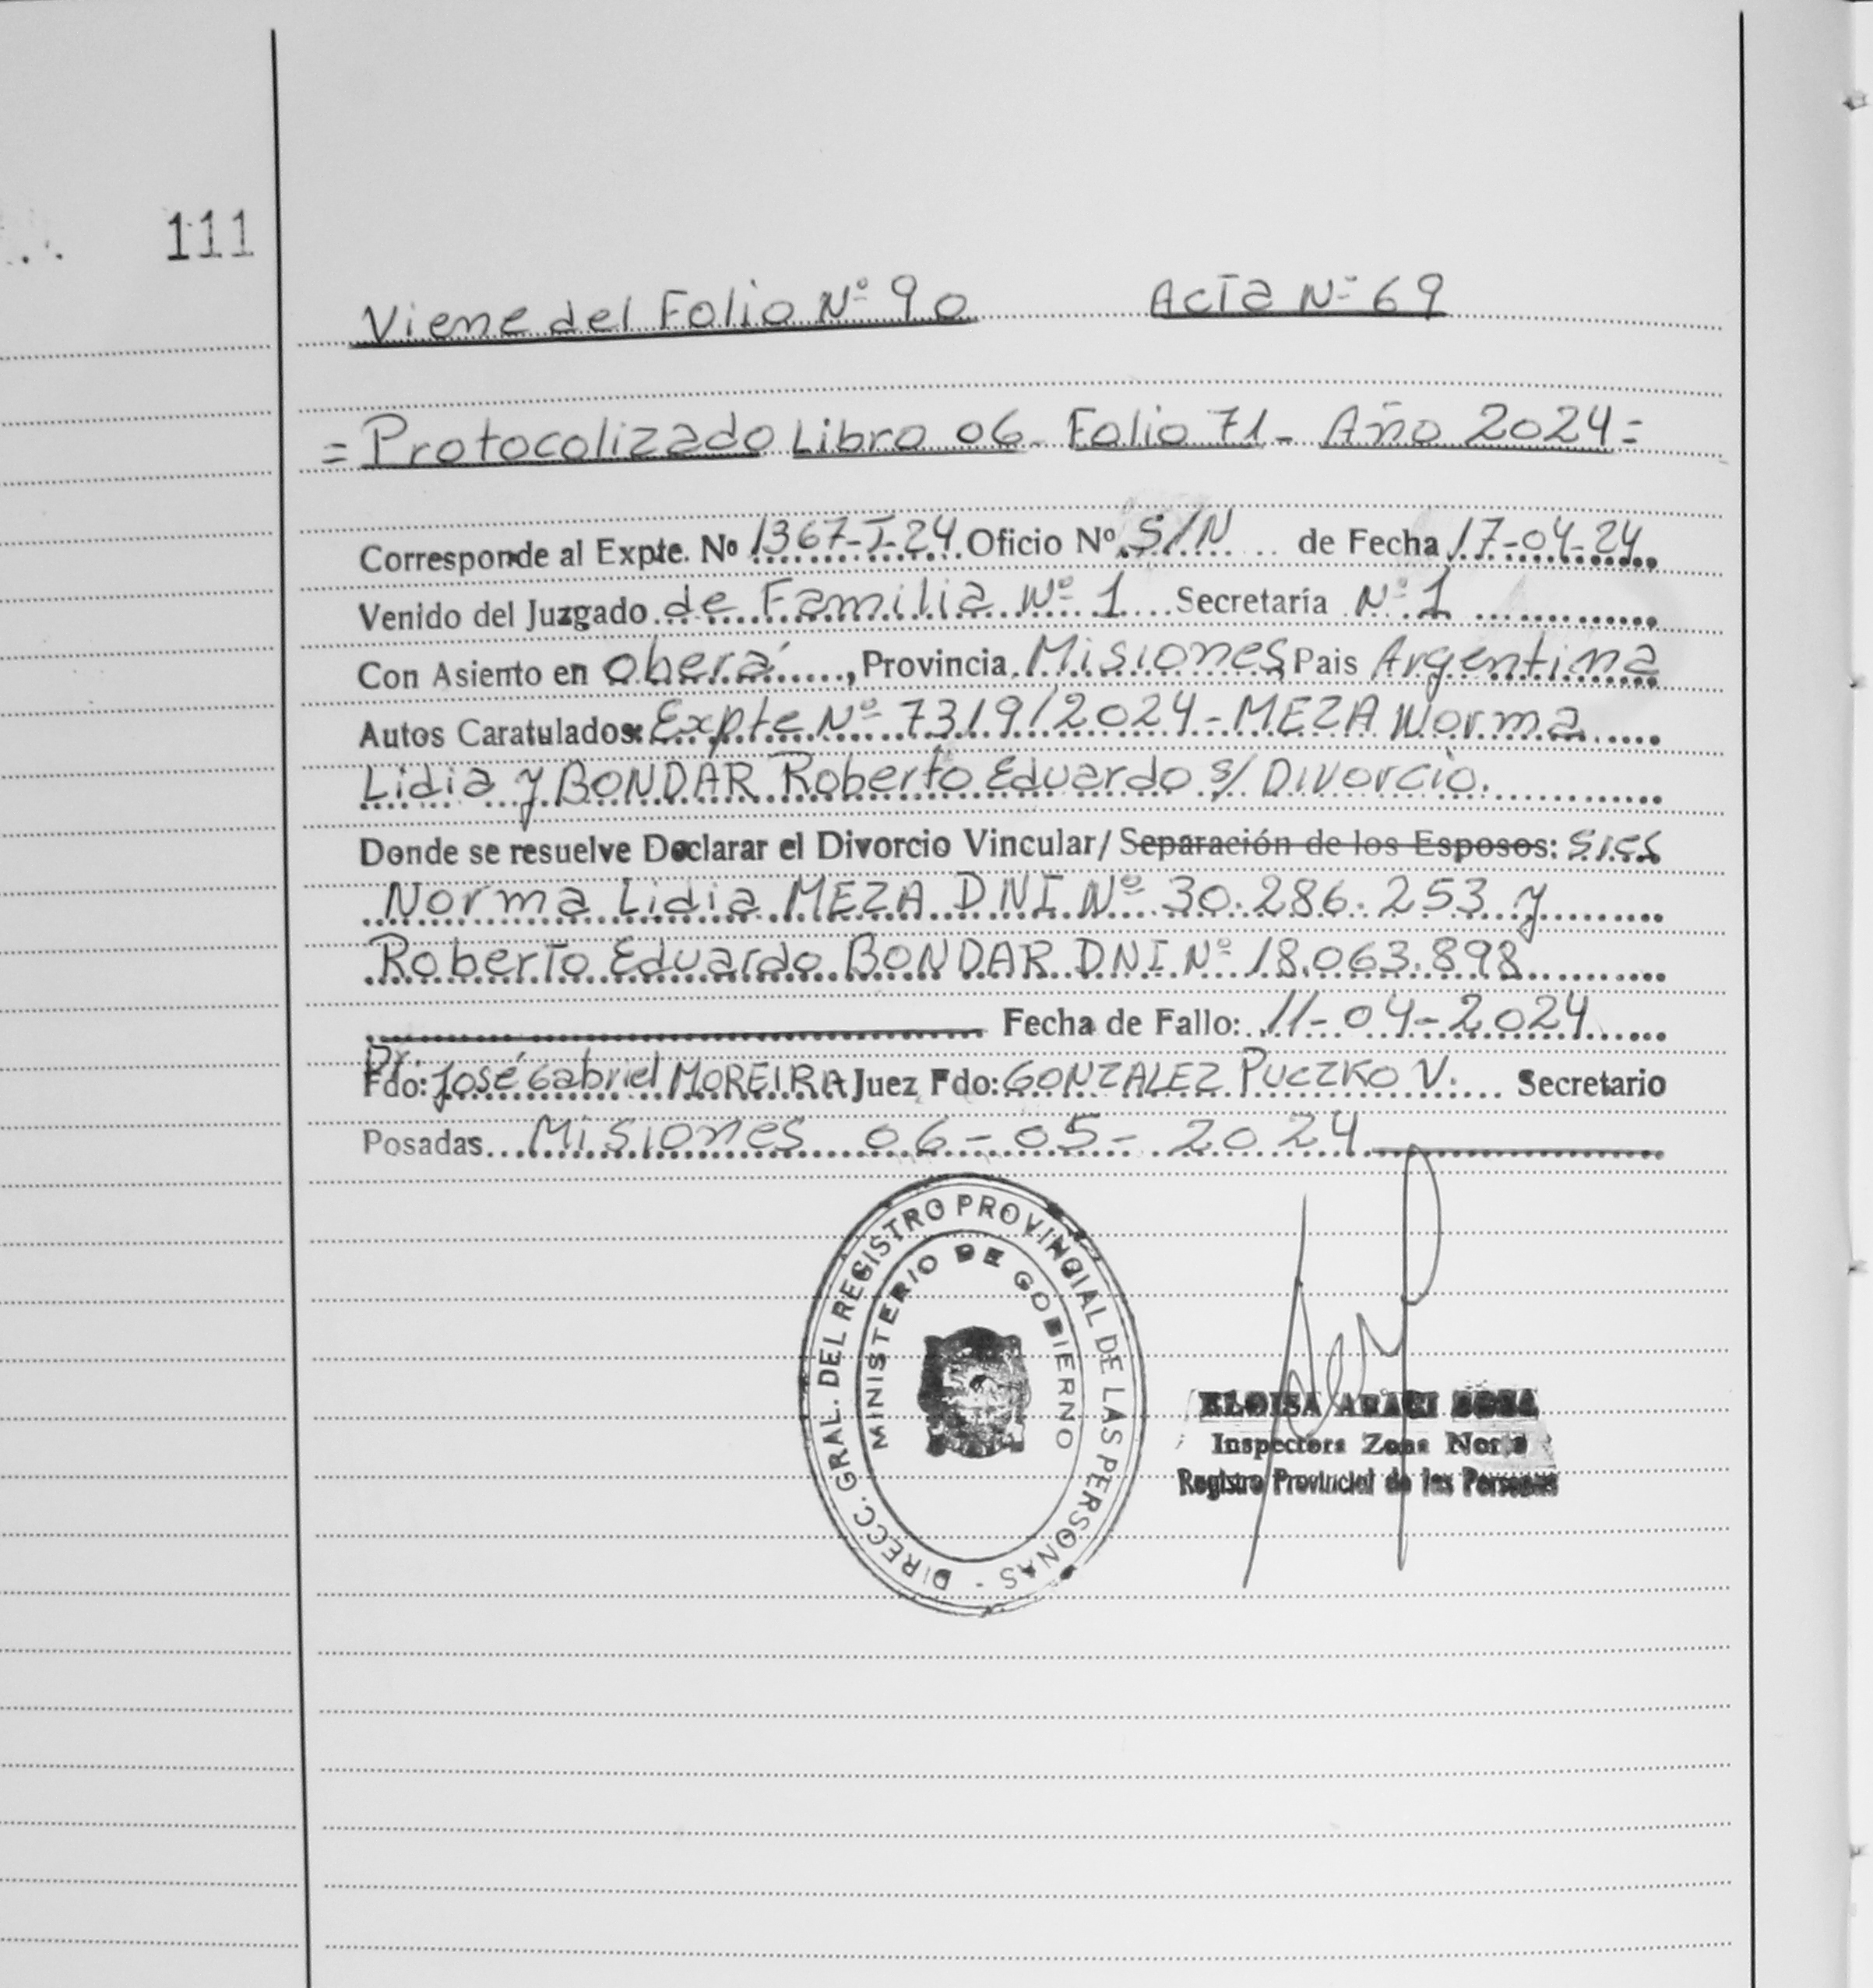 111
Viene del Folio Nº 90 Acta Nº 69
= Protocolizado Libro 06 - Folio 71 - Año 2024 =
Corresponde al Expte. Nº 1367-I-24 Oficio Nº S/N de Fecha 17-04-24
Venido del Juzgado de Familia Nº 1 Secretaría Nº 1
Con Asiento en Oberá, Provincia Misiones Pais Argentina
Autos Caratulados: Expte Nº 7319/2024 - MEZA Norma
Lidia y BONDAR Roberto Eduardo s/ Divorcio.
Donde se resuelve Declarar el Divorcio Vincular/ Separación de los Esposos:
Norma Lidia MEZA DNI Nº 30.286.253 y
Roberto Eduardo BONDAR DNI Nº 18.063.898
Fecha de Fallo: 11-04-2024
Dr.
Fdo: José Gabriel MOREIRA Juez Fdo: GONZALEZ PUCZKO V. Secretario
Posadas Misiones 06-05-2024
DIRECC. GRAL. DEL REGISTRO PROVINCIAL DE LAS PERSONAS -
MINISTERIO DE GOBIERNO
ELOISA
Inspectora Zona Norte
Registro Provincial de las Personas